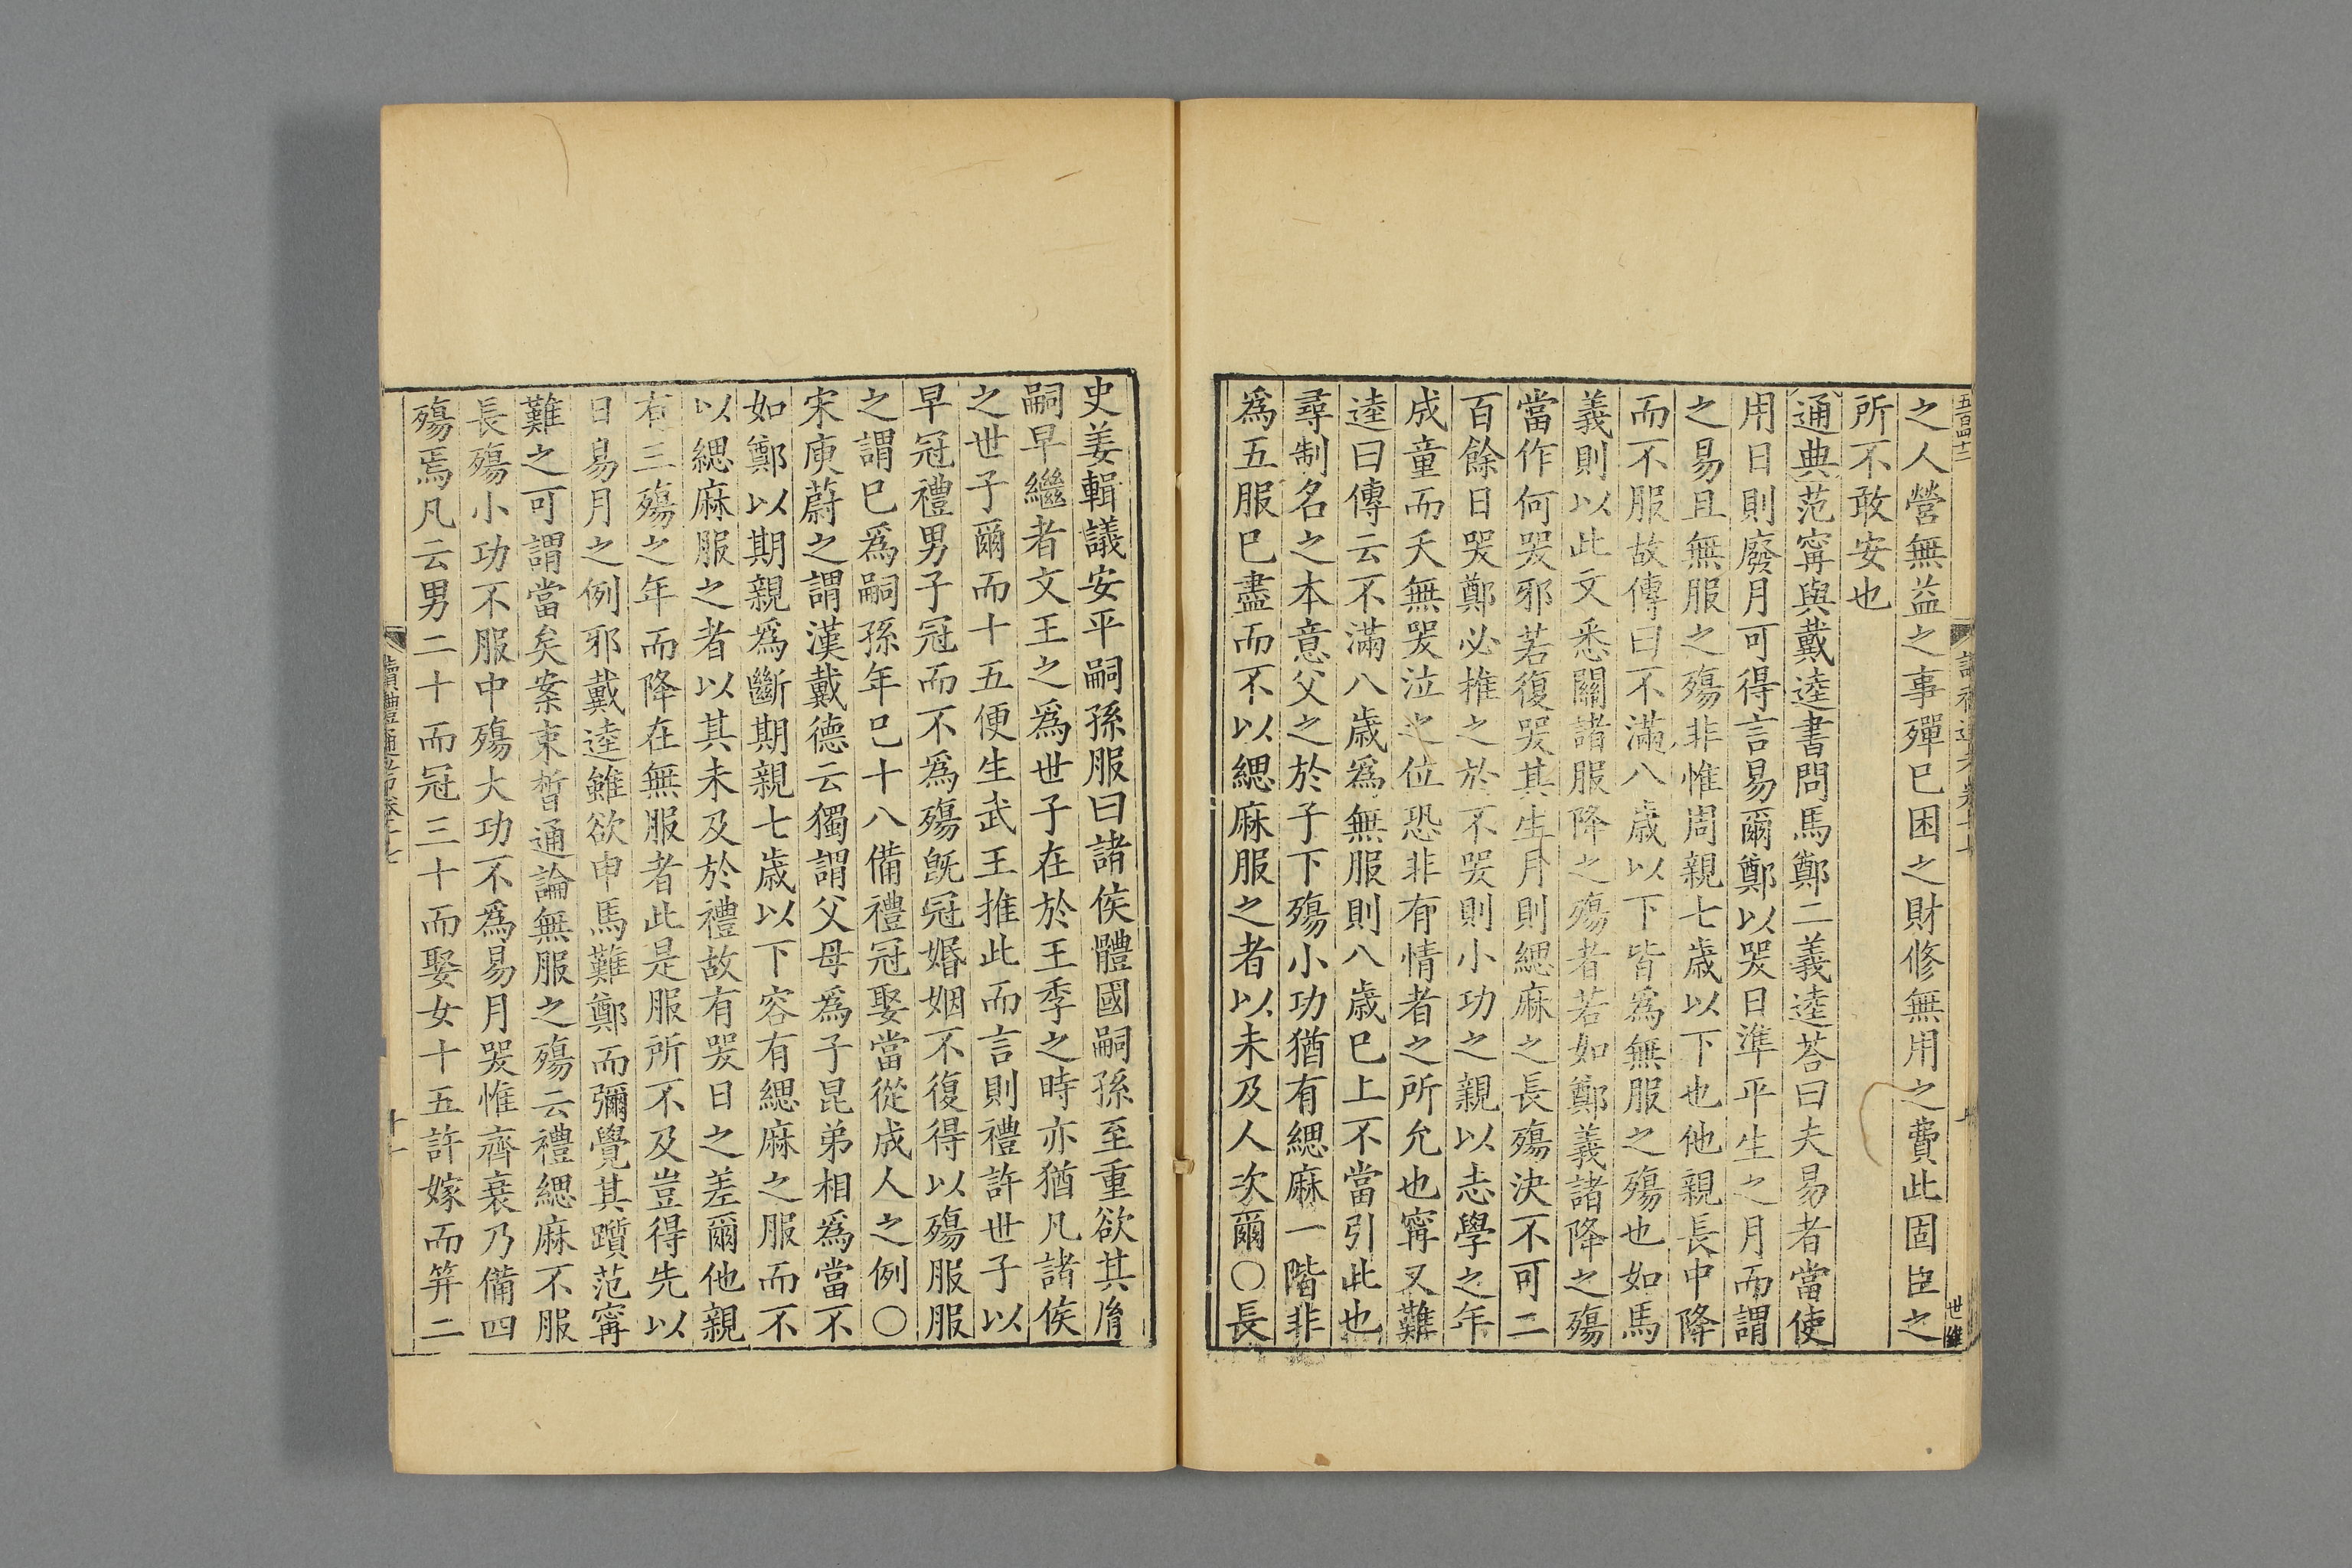 五百四十二
之人營無益之事殫已困之財修無用之費此固臣之
所不敢安也
通典范甯與戴逵書問馬鄭二義逵荅曰夫易者當使
用日則廢月可得言易爾鄭以哭日準平生之月而謂
之易且無服之殤非惟周親七歲以下也他親長中降
而不服故傳曰不滿八歲以下皆爲無服之殤也如馬
義則以此文悉關諸服降之殤者若如鄭義諸降之殤
當作何哭邪若復哭其生月則緦麻之長殤決不可二
百餘日哭鄭必推之於不哭則小功之親以志學之年
成童而夭無哭泣之位恐非有情者之所允也甯又難
逵曰傳云不滿八歲爲無服則八歲已上不當引此也
尋制名之本意父之於子下殤小功猶有緦麻一階非
爲五服已盡而不以緦麻服之者以未及人次爾○長
世維
史姜輯議安平嗣孫服曰諸侯體國嗣孫至重欲其胤
嗣早繼者文王之爲世子在於王季之時亦猶凡諸侯
之世子爾而十五便生武王推此而言則禮許世子以
早冠禮男子冠而不爲殤旣冠婚姻不復得以殤服服
之謂已爲嗣孫年已十八備禮冠娶當從成人之例○
宋庾蔚之謂漢戴德云獨謂父母爲子昆弟相爲當不
如鄭以期親爲斷期親七歲以下容有緦麻之服而不
以緦麻服之者以其未及於禮故有哭日之差爾他親
有三殤之年而降在無服者此是服所不及豈得先以
日易月之例邪戴逵雖欲申馬難鄭而彌覺其躓范甯
難之可謂當矣案束晳通論無服之殤云禮緦麻不服
長殤小功不服中殤大功不爲易月哭惟齊衰乃備四
殤焉凡云男二十而冠三十而娶女十五許嫁而笄二
讀禮通考卷十七
十一